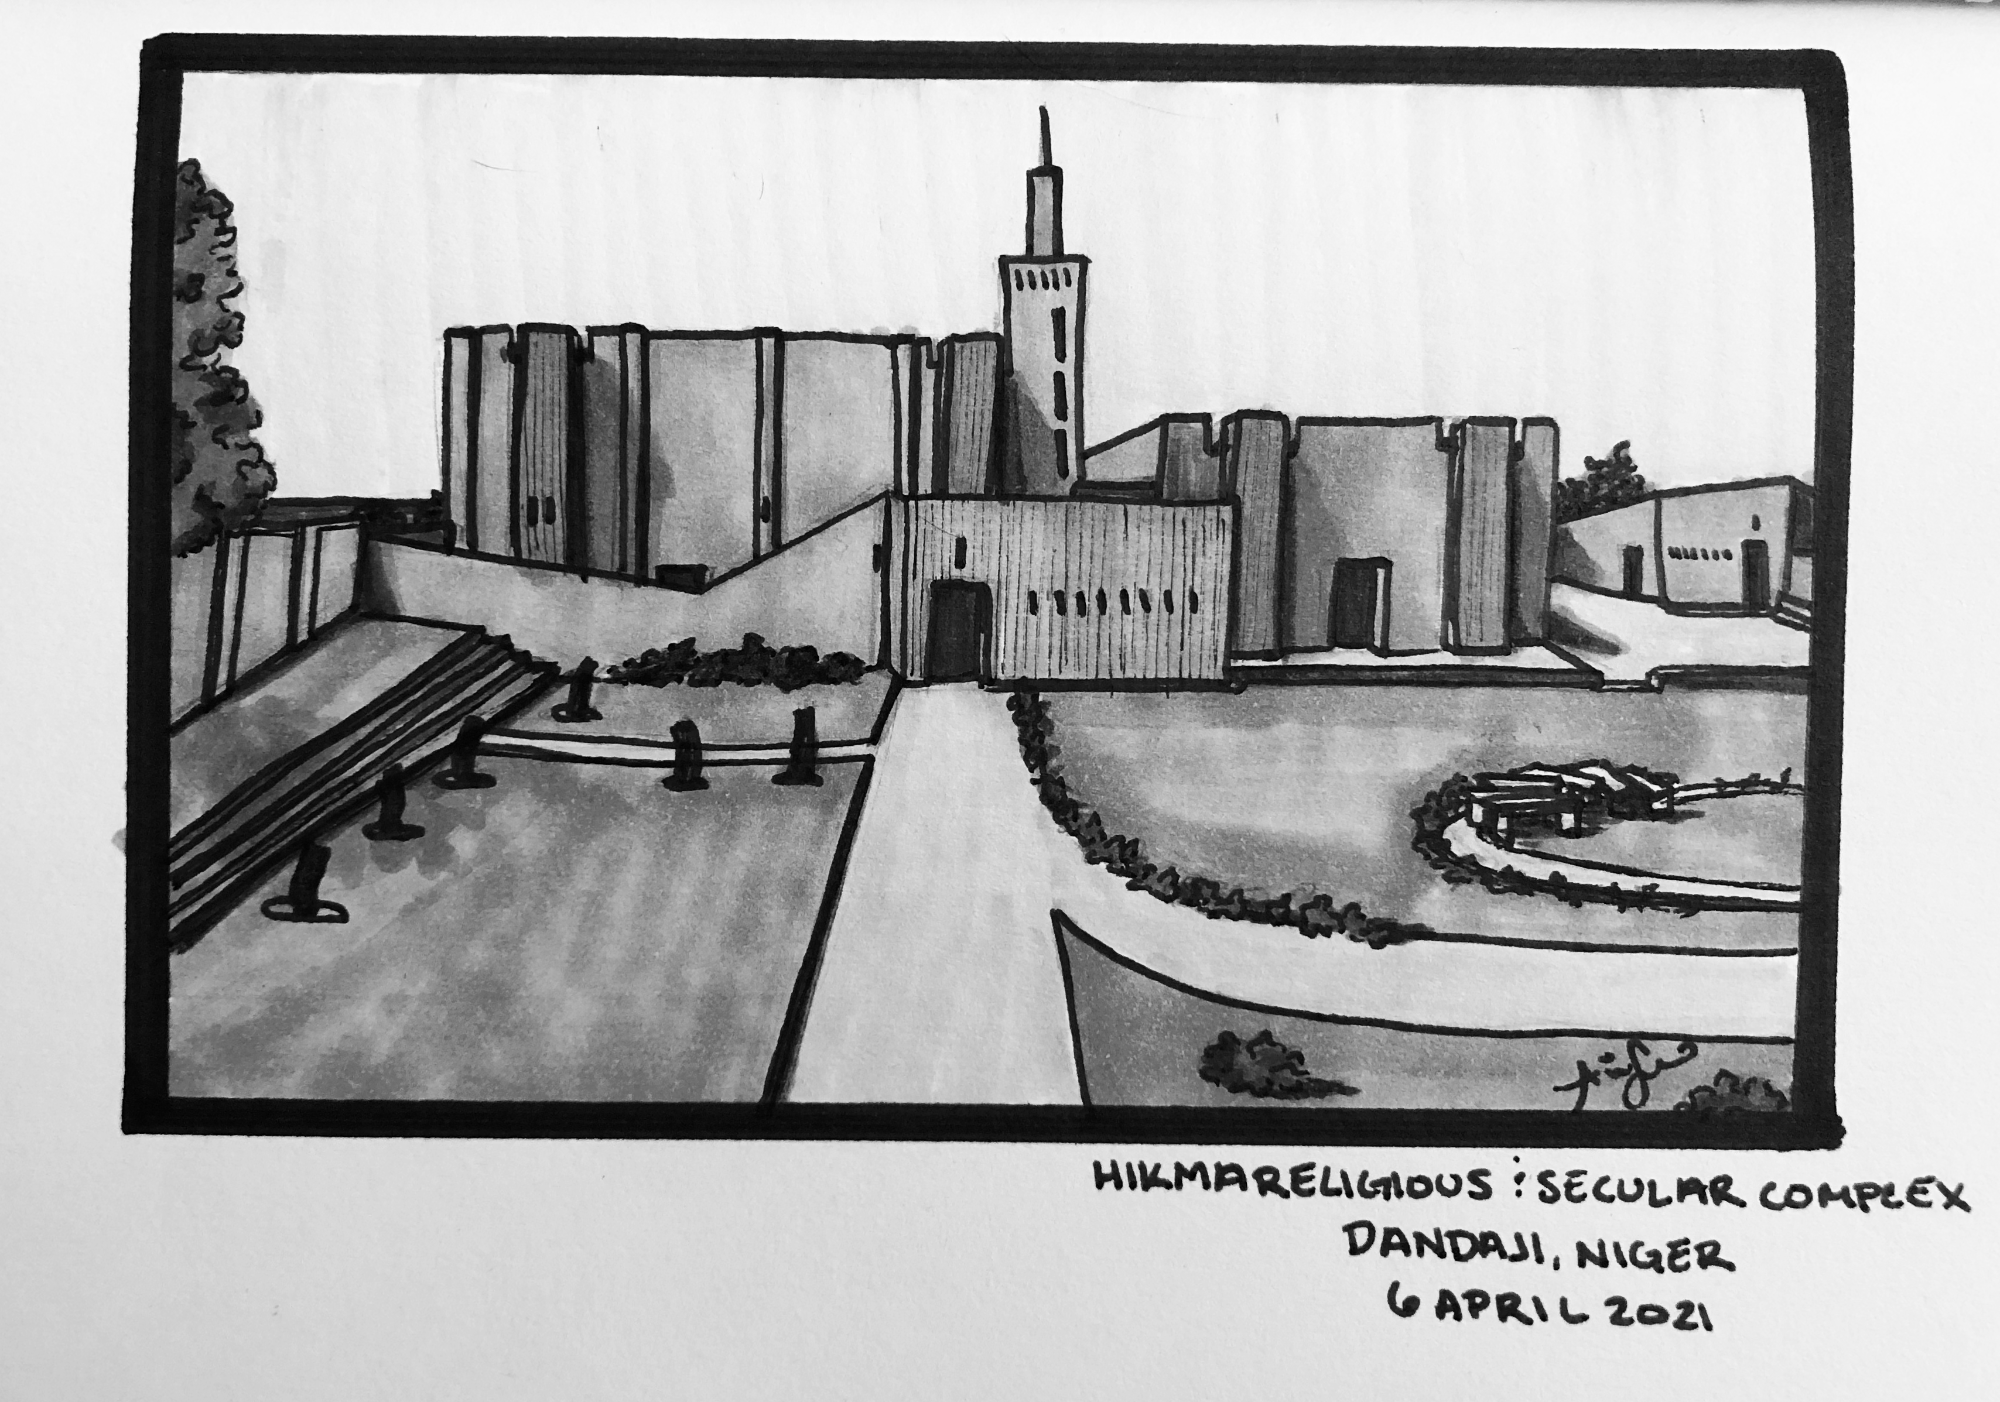 HIKMARELIGIOUS & SECULAR COMPLEX
DANDAJI, NIGER
6 APRIL 2021